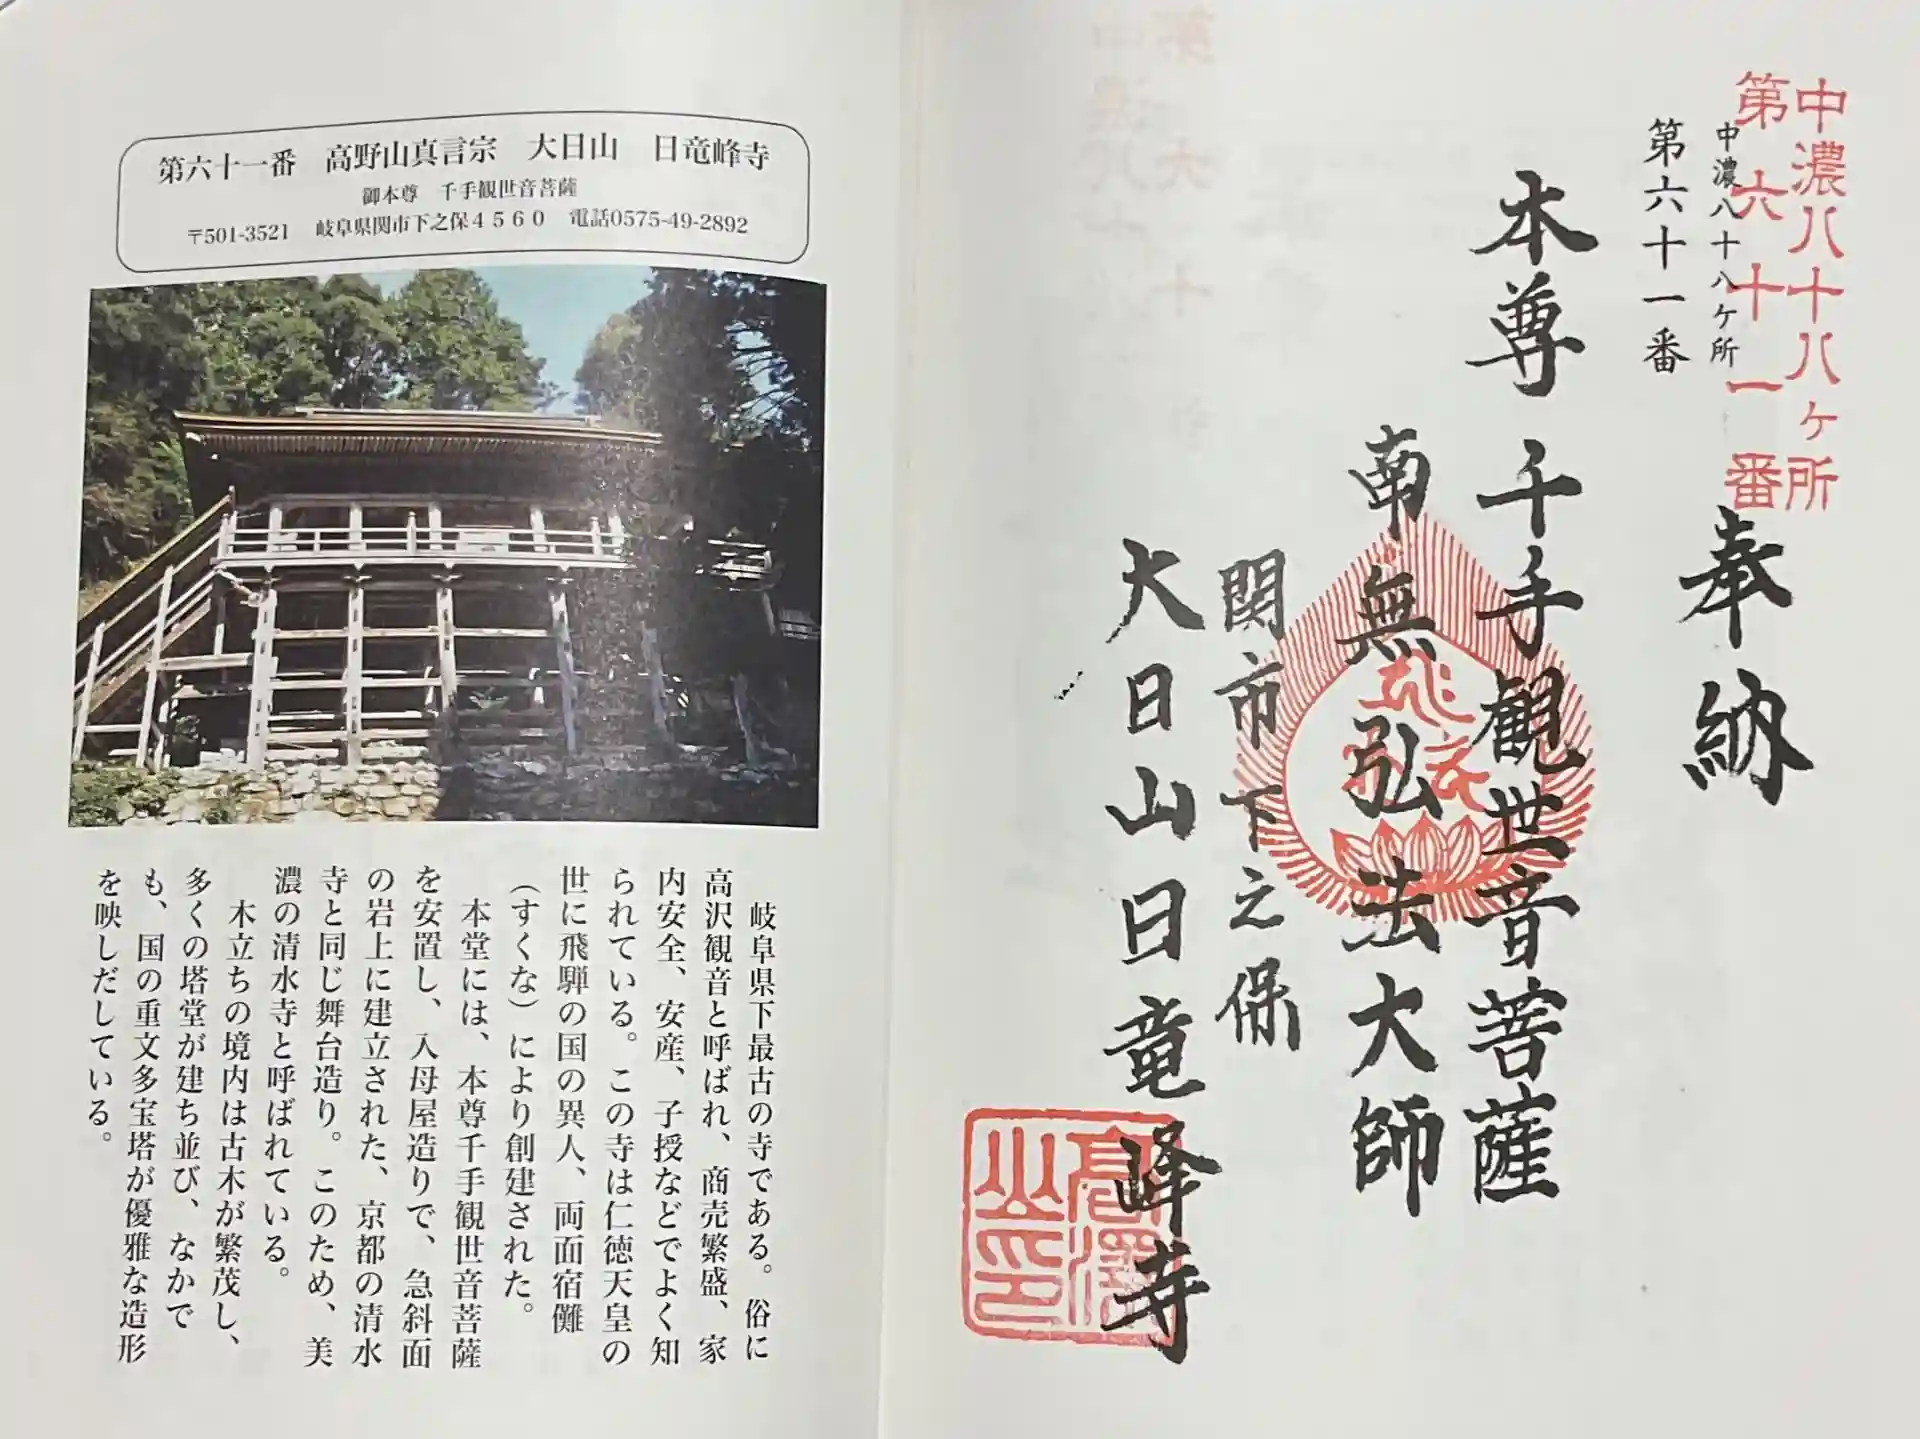 中濃八十八ヶ所
第六十一番
中濃八十八ヶ所
第六十一番
奉納
本尊 千手観世音菩薩
南無弘法大師
関市下之保
大日山日竜峰寺
高澤
山印
第六十一番 高野山真言宗 大日山 日竜峰寺
御本尊 千手観世音菩薩
〒501-3521 岐阜県関市下之保4560 電話0575-49-2892
岐阜県下最古の寺である。俗に
高沢観音と呼ばれ、商売繁盛、家
内安全、安産、子授などでよく知
られている。この寺は仁徳天皇の
世に飛騨の国の異人、両面宿儺
(すくな)により創建された。
本堂には、本尊千手観世音菩薩
を安置し、入母屋造りで、急斜面
の岩上に建立された、京都の清水
寺と同じ舞台造り。このため、美
濃の清水寺と呼ばれている。
木立ちの境内は古木が繁茂し、
多くの塔堂が建ち並び、なかで
も、国の重文多宝塔が優雅な造形
を映しだしている。